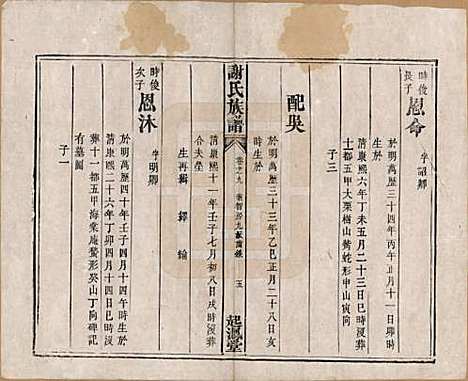 時俊
長子
恩命
字詔卿
於明萬歷三十四年丙午正月十一日卯時
生於
清康熙六年丁未五月二十三日巳時沒葬
十七都五甲大栗樹山螯蛇形申山寅向
子三
配吳
於明萬歷三十三年乙巳正月二十八日亥
時生於
清康熙十一年壬子七月初八日戌時沒葬
合夫塋
生再輯 鐸 綸
謝氏族譜
卷之九
五
起鳳堂
時俊
次子
恩沐
字明卿
於明萬歷四十年壬子四月十四午時生於
清康熙二十六年丁卯四月十四日巳時沒
葬十一都五甲海棠庵螯形癸山丁向碑記
有墓圖
子一